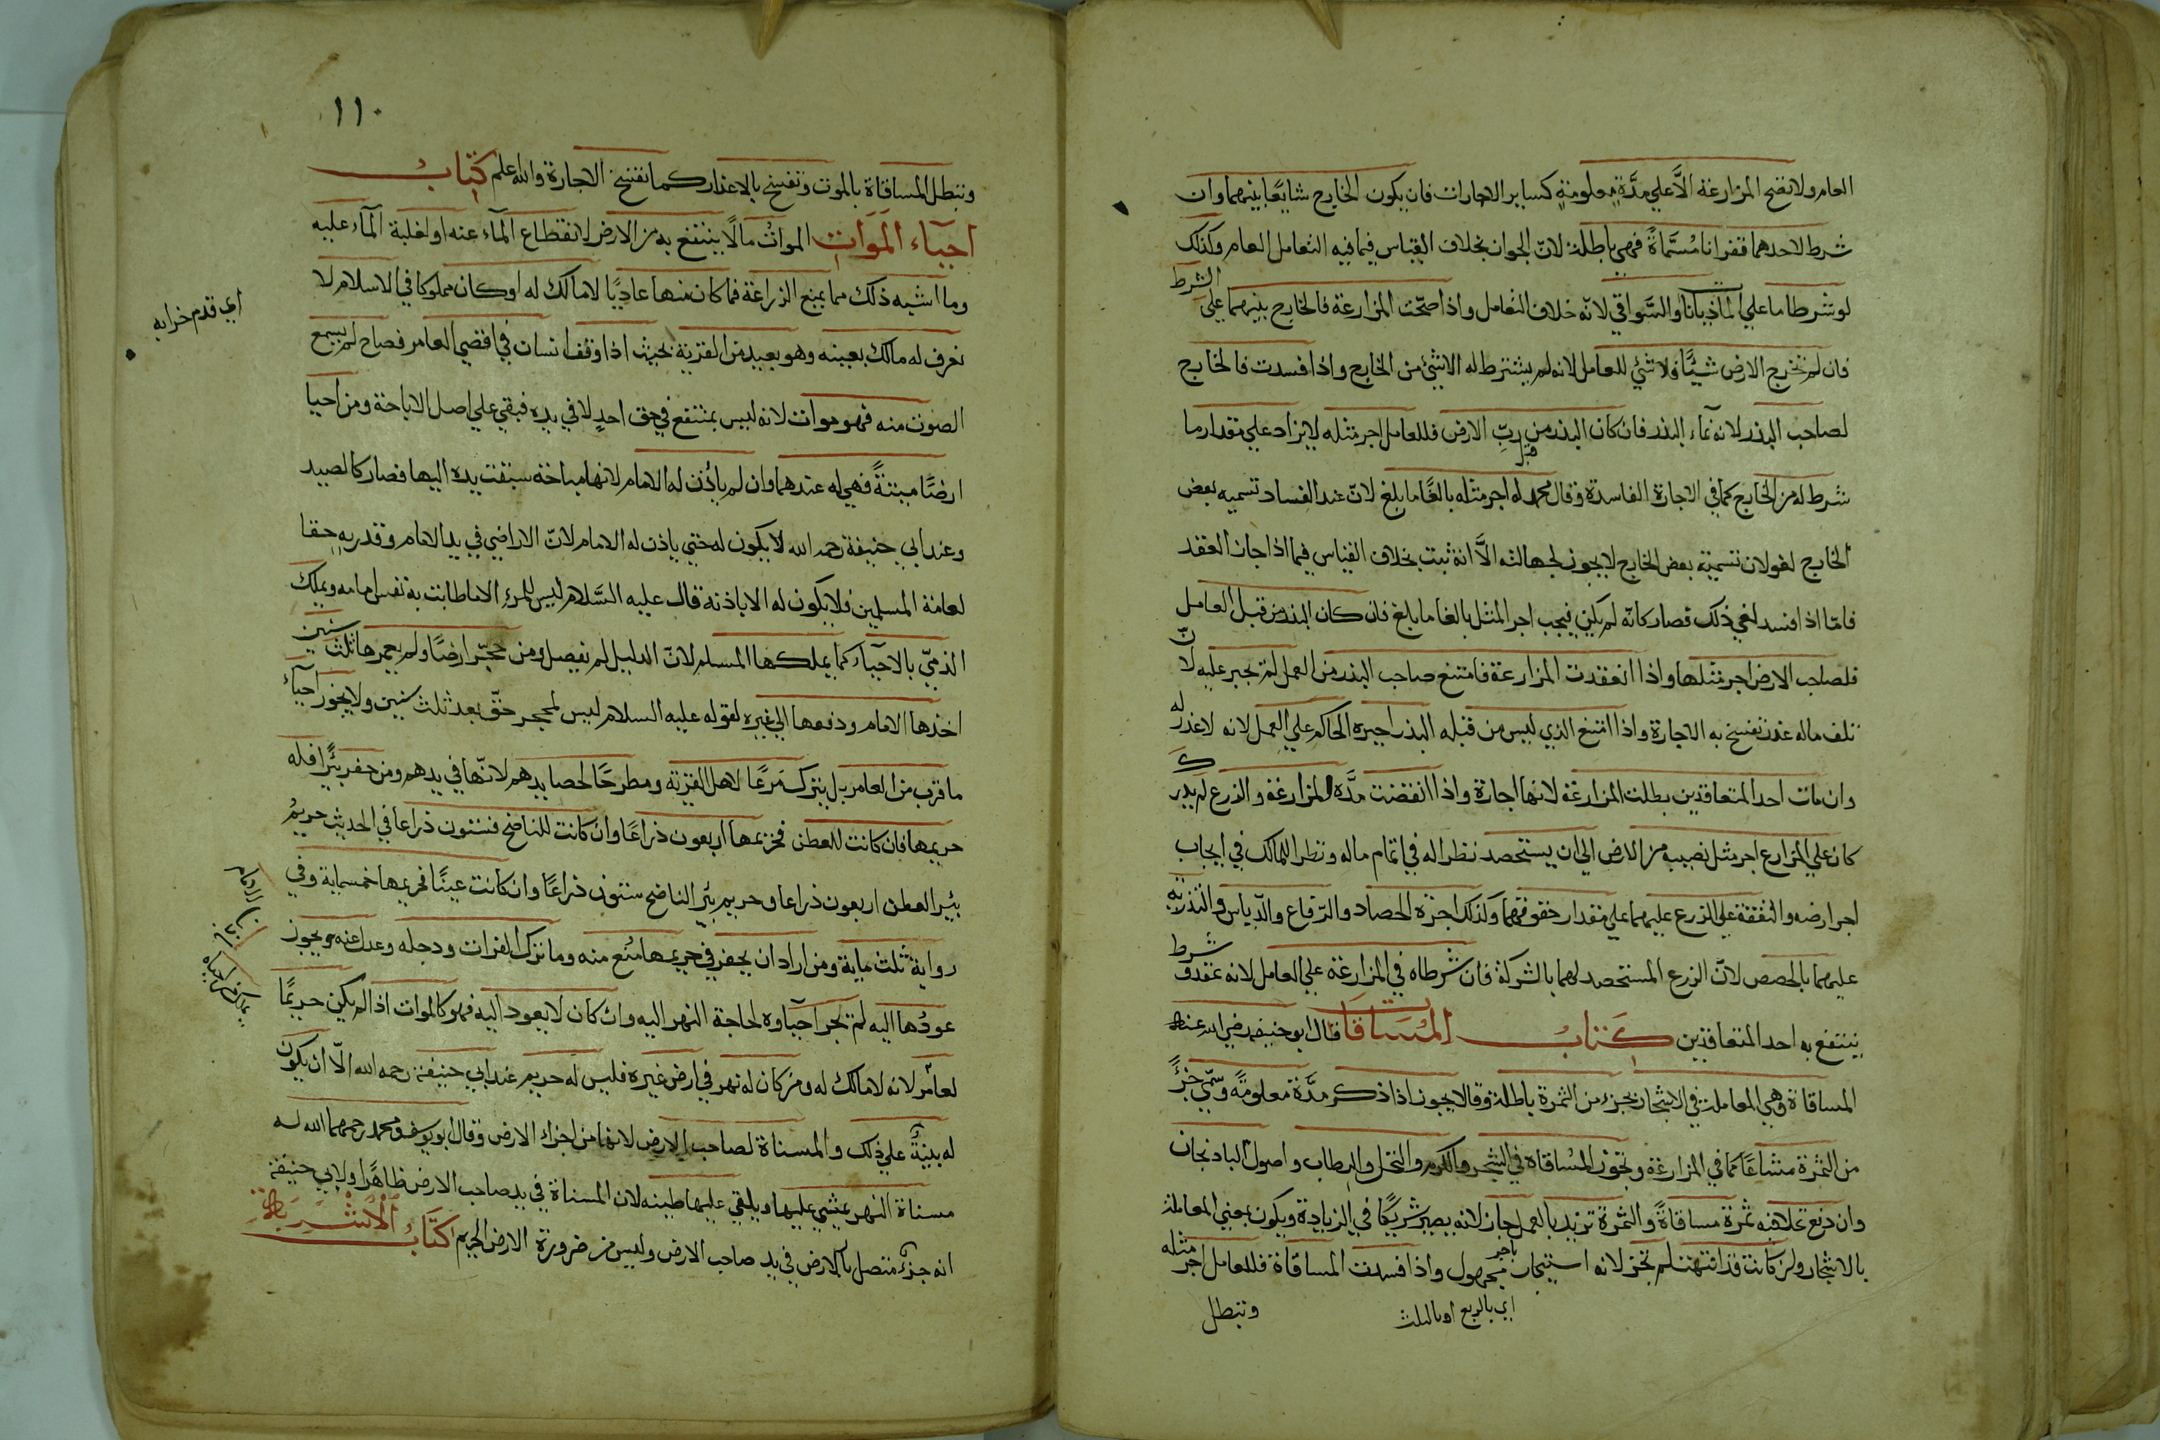 العام ولا تصح المزارعة الّا علي مدّة معلومة كساير الاجارات فان يكون الخارج شايعًا بينهما وان
شرط لاحدهما قفزانا مُسمّاةً فهي باطلة لانّ الجواز بخلاف القياس فيما فيه التعامل العام وكذلك
لو شرطا ما علي الماذيانات والسّواقي لانّه خلاف التعامل واذا صحّت المزارعة فالخارج بينهما علي الشرط
فان لم تخرج الارض شيئًا فلا شئ للعامل لانه لم يشترط له الا شئ من الخارج واذا فسدت فالخارج
لصاحب البذر لانه نماء البذر فان كان البذر من قبل ربّ الارض فللعامل اجر مثله لا يزاد علي مقدار ما
شرط له من الخارج كما في الاجارة الفاسدة وقال محمد له اجر مثله بالغًا ما بلغ لانّ عند الفساد تسميه بعض
الخارج لغو لان تسمية بعض الخارج لا يجوز لجهالته الّا انه ثبت بخلاف القياس فيما اذا جاز العقد
فامّا اذا فسد لغي ذلك فصار كانّه لم يكن فيجب اجر المثل بالغا ما بلغ فان كان البذر من قبل العامل
فلصاحب الارض اجر مثلها واذا انعقدت المزارعة فامتنع صاحب البذر من العمل لم يجبر عليه لانّ
تلف ماله عذر تفسخ به الاجارة واذا امتنع الذي ليس من قبله البذر اجبره الحاكم علي العمل لانه لا عذر له
وان مات احد المتعاقدين بطلت المزارعة لانها اجارة واذا انقضت مدّة المزارعة والزرع لم يدرك
كان علي المزارع اجر مثل نصيبه من الارض الي ان يستحصد نظرا له في اتمام ماله ونظرا للمالك في ايجاب
اجر ارضه والنفقة علي الزرع عليهما علي مقدار حقوقهما وكذلك اجرة الحصاد والرّفاع والدّياس والتذرية
عليهما بالحصص لانّ الزرع المستحصد لهما بالشركة فان شرطاه في المزارعة علي العامل لانه عقد وشرط
ينتفع به احد المتعاقدين كتاب المساقات قال ابو حنيفة رضي الله عنه
المساقاة وهي المعاملة في الاشجار بجزء من الثمرة باطلة وقالا يجوز اذا ذكر مدّة معلومةً وسمّي جزءً
من الثمرة مشاعًا كما في المزارعة وتجوز المُساقاة في الشجر والكرم والنخل والرطاب واصول الباذنجان
وان دفع نخلا فيه ثمرة مساقاةً والثمرة تزيد بالعمل جاز لانه يصير شريكًا في الزيادة ويكون بمعني المعاملة
بالاشجار وان كانت قد انتهت لم تجز لانه استيجار باجر مجهول واذا فسدت المساقاة فللعامل اجر مثله
اي بالربع او بالثلث
وتبطل
١١٠
وتبطل المساقاة بالموت وتفسخ بالاعذار كما تفسخ الاجارة والله اعلم كتاب
احياء المَوَات الموات ما لا ينتفع به من الارض لانقطاع الماء عنه او لغلبة الماء عليه
وما اشبه ذلك مما يمنع الزراعة فما كان منها عاديًا لا مالك له او كان مملوكا في الاسلام لا
اي قدم خرابه
نعرف له مالك بعينه وهو بعيد من القرية بحيث اذا وقف انسان في اقصي العامر فصاح لم يسمع
الصوت منه فهو موات لانه ليس بمنتفع في حق احدٍ لا في يده فبقي علي اصل الاباحة ومن احيا
ارضًا ميتةً فهي له عندهما وان لم ياذن له الامام لانها مباحة سبقت يده اليها فصار كالصيد
وعند ابي حنيفة رحمه الله لا يكون له حتي ياذن له الامام لانّ الاراضي في يد الامام وقدر به حقا
لعامة المسلمين فلا يكون له الا باذنه قال عليه السّلام ليس للمرء الا ما طابت به نفس امامه ويملك
الذميّ بالاحياء كما يملكها المسلم لانّ الدليل لم يفصل ومن حجّر ارضًا ولم يعمرها ثلث سنين
اخذها الامام ودفعها الي غيره لقوله عليه السلام ليس لمحجر حقّ بعد ثلث سنين ولا يجوز احياء
ما قرب من العامر بل يترك مَرعًا لاهل القرية ومطرحًا لحصايدهم لانّها في يدهم ومن حفر بئرًا فله
حريمها فان كانت للعطن فحريمها اربعون ذراعًا وان كانت للناضح فستون ذراعا في الحديث حريمُ
بئر العطن اربعون ذراعا وحريم بئر الناضح ستون ذراعًا وان كانت عينًا فحريمها خمسماية وفي
رواية ثلث ماية ومن اراد ان يحفر في حريمها مُنع منه وما ترك الفرات ودجله وعدل عنه ويجوز
عودُها اليه لم تجز احياوه لحاجة النهر اليه وان كان لا يعود اليه فهو كالموات اذا لم يكن حريمًا
لعامر لانه لا مالك له ومن كان له نهر في ارض غيره فليس له حريم عند ابي حنيفة رحمه الله الّا ان يكون
له بينةٌ علي ذلك والمسناة لصاحب الارض لانها من اجزاء الارض وقال ابو يوسف ومحمد رحمهما الله له
مسناة النهر يمشي عليها ويلقي عليها طينه لان المسناة في يد صاحب الارض ظاهرًا ولابي حنيفة
انه جزءٌ متصل بالارض في يد صاحب الارض وليس من ضرورة الارض الحريم كتَابُ الاشربة